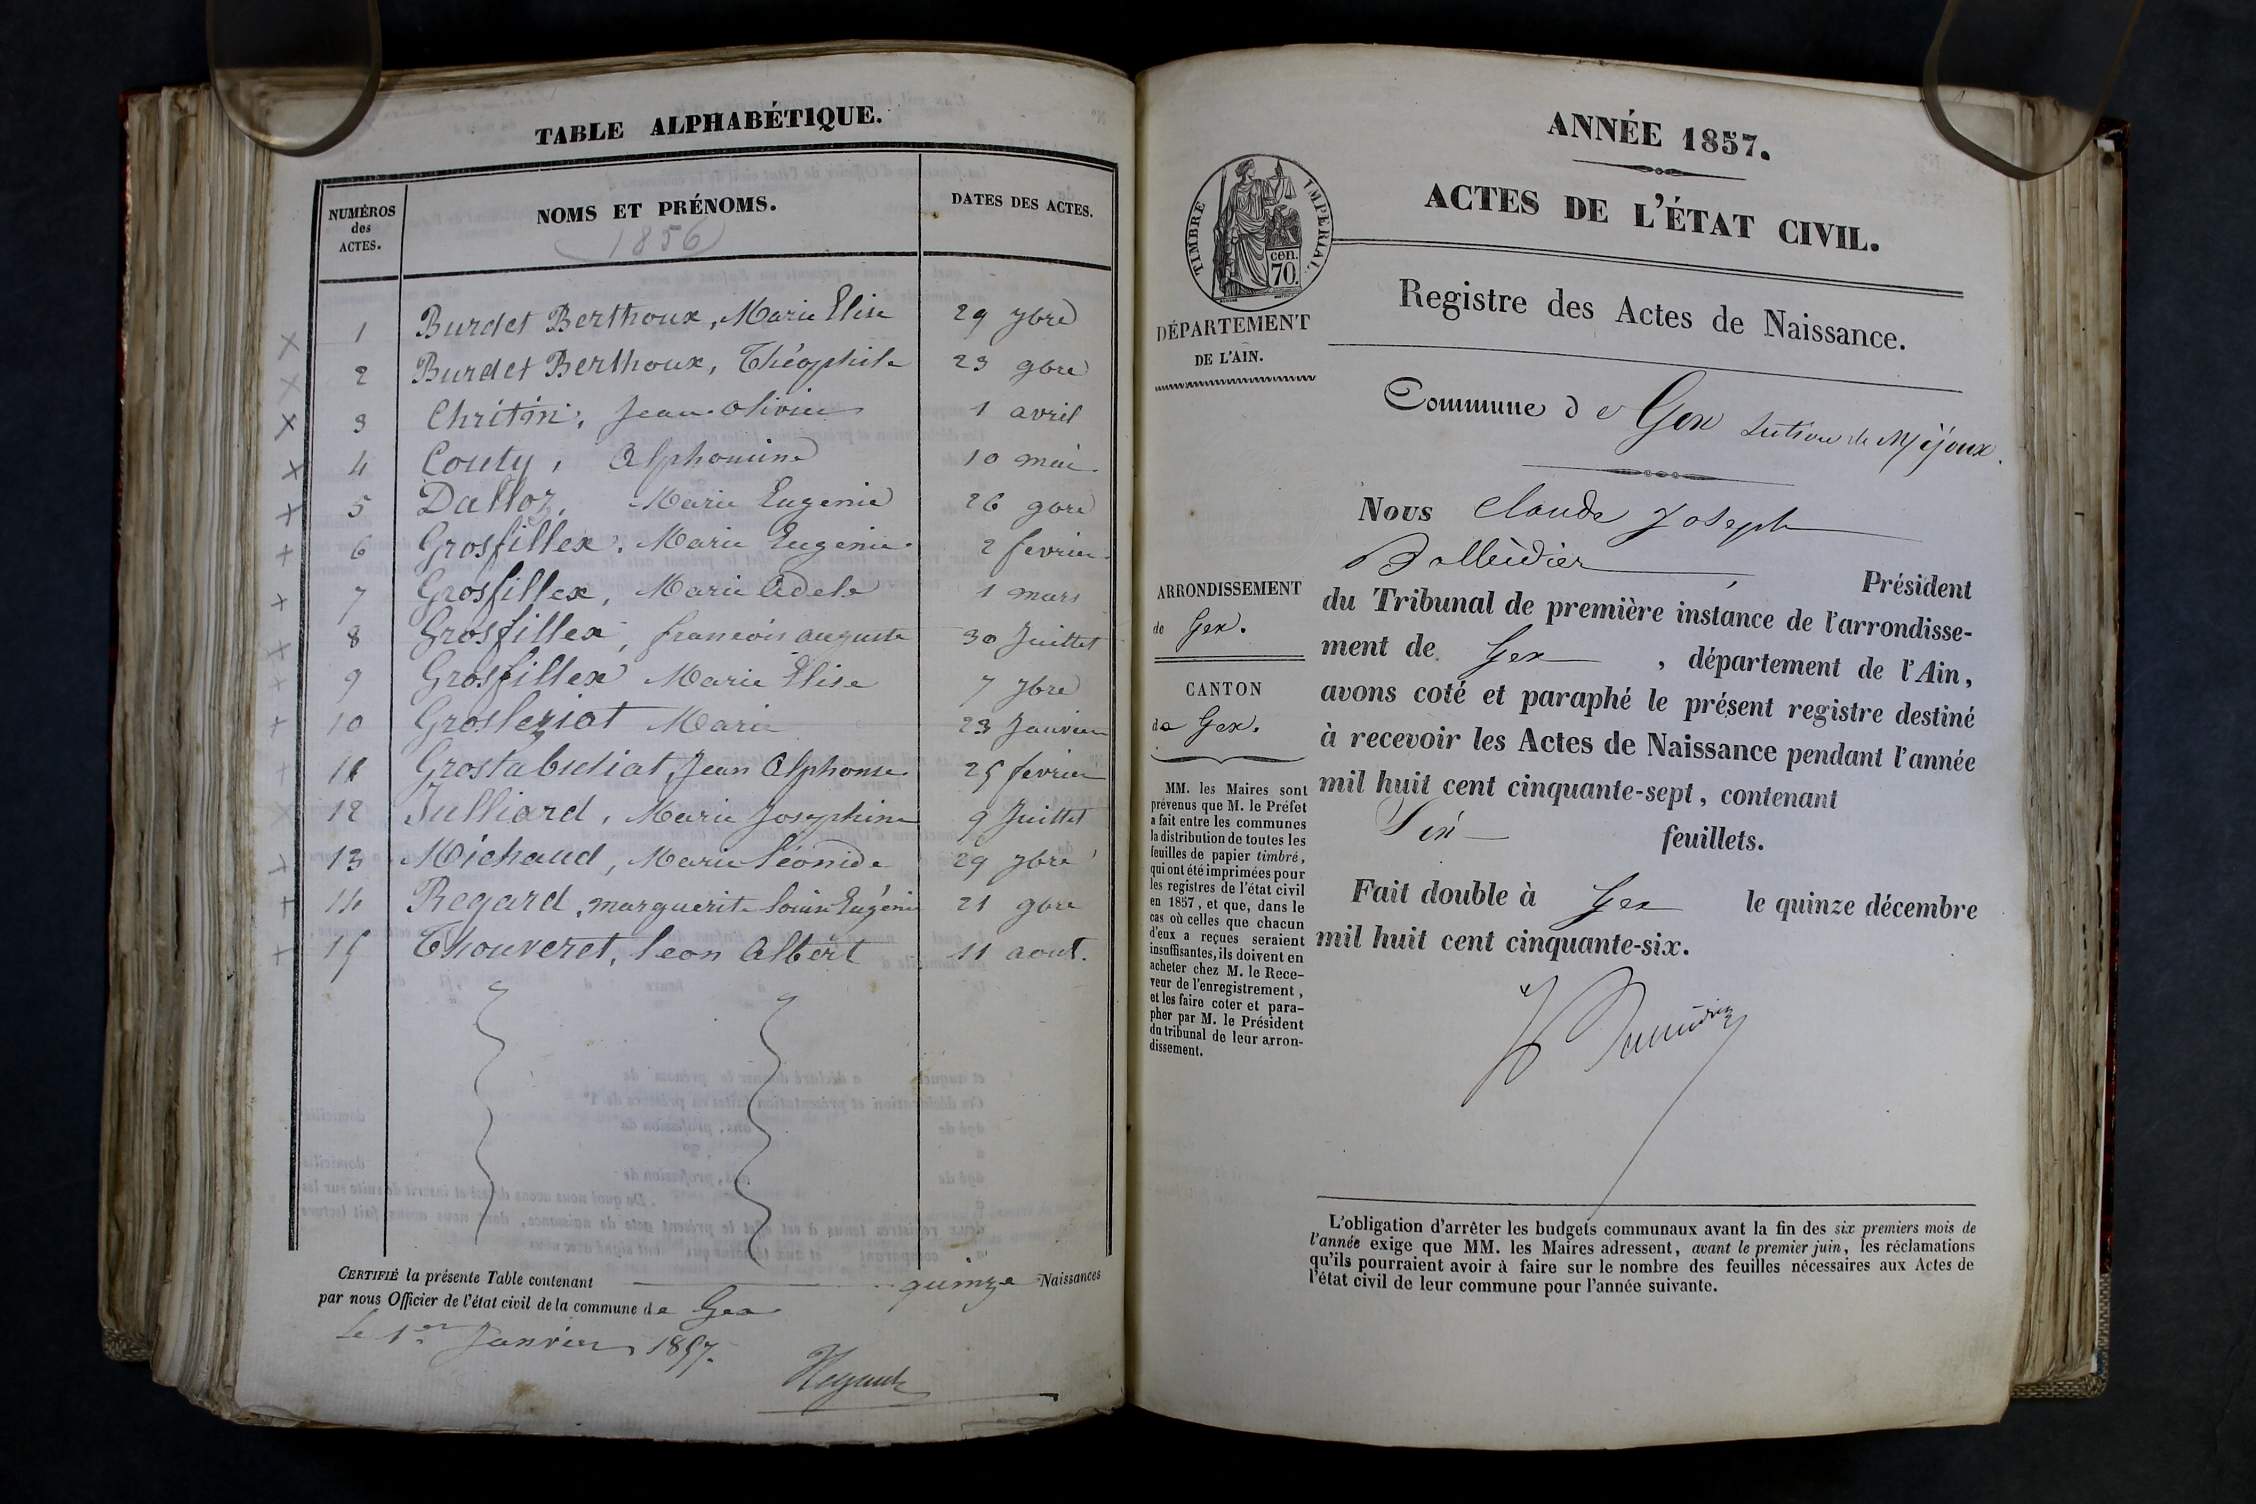 TABLE ALPHABÉTIQUE.
NUMÉROS des ACTES.
NOMS ET PRÉNOMS.
DATES DES ACTES.
(1856)
1 Burdet Berthoux, Marie Elise 29 7bre
2 Burdet Berthoux, Théophile 23 9bre
3 Chritin, Jean Olivier 1 avril
4 Couty, Alphonsine 10 mai
5 Dalloz, Marie Eugenie 26 9bre
6 Grosfillex, Marie Eugenie 2 fevrier
7 Grosfillex, Marie Adele 1 mars
8 Grosfillex, francois auguste 30 Juillet
9 Grosfillex Marie Elise 7 7bre
10 Grosleziat Marie 23 Janvier
11 Grostabusiat, Jean Alphonse 25 fevrier
12 Julliard, Marie Josephine 9 Juillet
13 Michaud, Marie Léonide 29 7bre
14 Regard, marguerite louise Eugénie 21 9bre
15 Thouveret, leon Albert 11 aout.
CERTIFIÉ la présente Table contenant quinze Naissances
par nous Officier de l'état civil de la commune de Gex
le 1er Janvier 1857.
ANNÉE 1857.
ACTES DE L'ÉTAT CIVIL.
TIMBRE IMPERIAL
cen.
70.
DÉPARTEMENT
DE L'AIN.
Registre des Actes de Naissance.
Commune de Gex section de Mijoux.
Nous Claude Joseph
Balleidier, Président
du Tribunal de première instance de l'arrondisse-
ment de Gex, département de l'Ain,
avons coté et paraphé le présent registre destiné
à recevoir les Actes de Naissance pendant l'année
mil huit cent cinquante-sept, contenant
feuillets.
Fait double à Gex le quinze décembre
mil huit cent cinquante-six.
ARRONDISSEMENT
de Gex.
CANTON
de Gex.
MM. les Maires sont
prévenus que M. le Préfet
a fait entre les communes
la distribution de toutes les
feuilles de papier timbré,
qui ont été imprimées pour
les registres de l'état civil
en 1857, et que, dans le
cas où celles que chacun
d'eux a reçues seraient
insuffisantes, ils doivent en
acheter chez M. le Rece-
veur de l'enregistrement,
et les faire coter et para-
pher par M. le Président
du tribunal de leur arron-
dissement.
L'obligation d'arrêter les budgets communaux avant la fin des six premiers mois de
l'année exige que MM. les Maires adressent, avant le premier juin, les réclamations
qu'ils pourraient avoir à faire sur le nombre des feuilles nécessaires aux Actes de
l'état civil de leur commune pour l'année suivante.